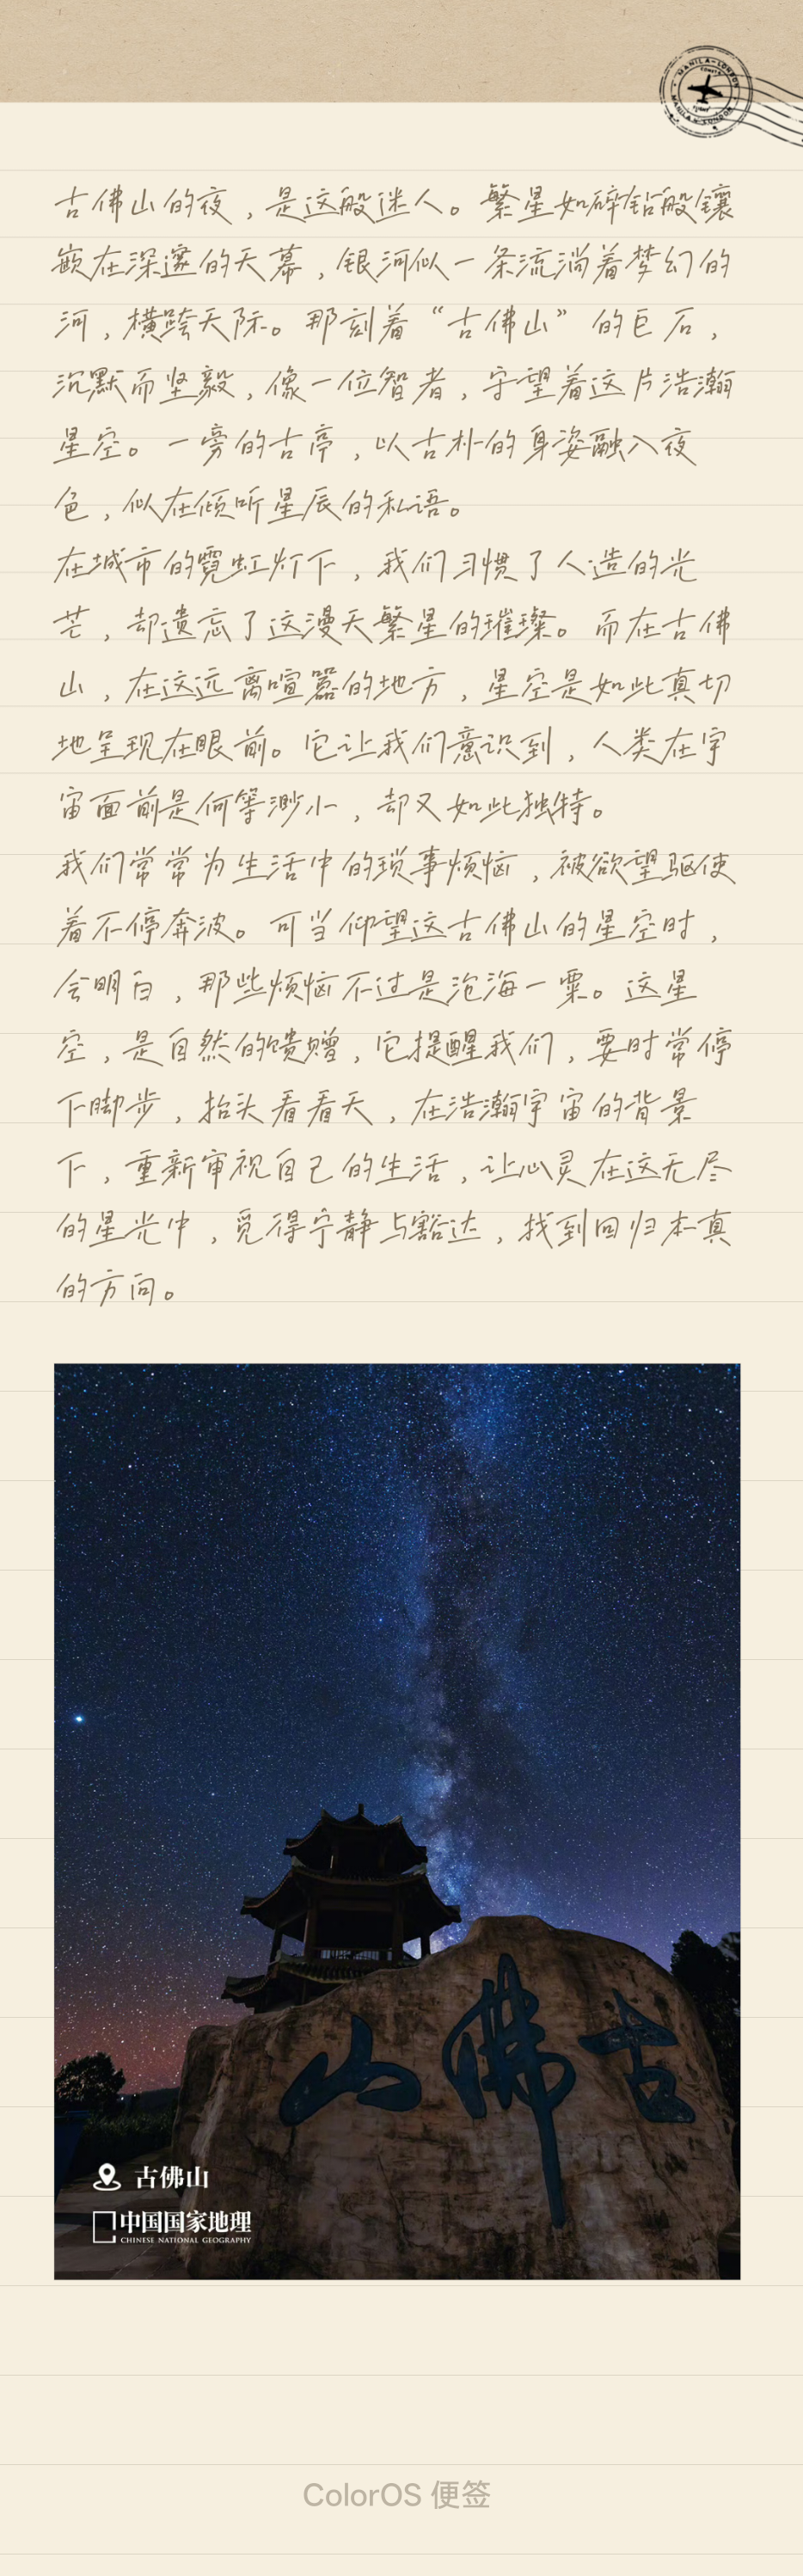 MANILA-LONDON
MANILA-LONDON
古佛山的夜，是这般迷人。繁星如碎钻般镶
嵌在深邃的天幕，银河似一条流淌着梦幻的
河，横跨天际。那刻着“古佛山”的巨石，
沉默而坚毅，像一位智者，守望着这片浩瀚
星空。一旁的古亭，以古朴的身姿融入夜
色，似在倾听星辰的私语。
在城市的霓虹灯下，我们习惯了人造的光
芒，却遗忘了这漫天繁星的璀璨。而在古佛
山，在这远离喧嚣的地方，星空是如此真切
地呈现在眼前。它让我们意识到，人类在宇
宙面前是何等渺小，却又如此独特。
我们常常为生活中的琐事烦恼，被欲望驱使
着不停奔波。可当仰望这古佛山的星空时，
会明白，那些烦恼不过是沧海一粟。这星
空，是自然的馈赠，它提醒我们，要时常停
下脚步，抬头看看天，在浩瀚宇宙的背景
下，重新审视自己的生活，让心灵在这无尽
的星光中，觅得宁静与豁达，找到回归本真
的方向。
古佛山
古佛山
中国国家地理
CHINESE NATIONAL GEOGRAPHY
ColorOS 便签